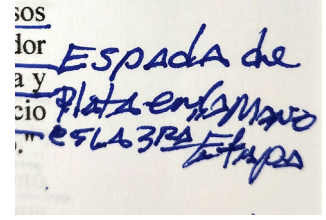 sos
dor
a y
cio
."
Espada de
plata en la mano
es LA 3RA Etapa